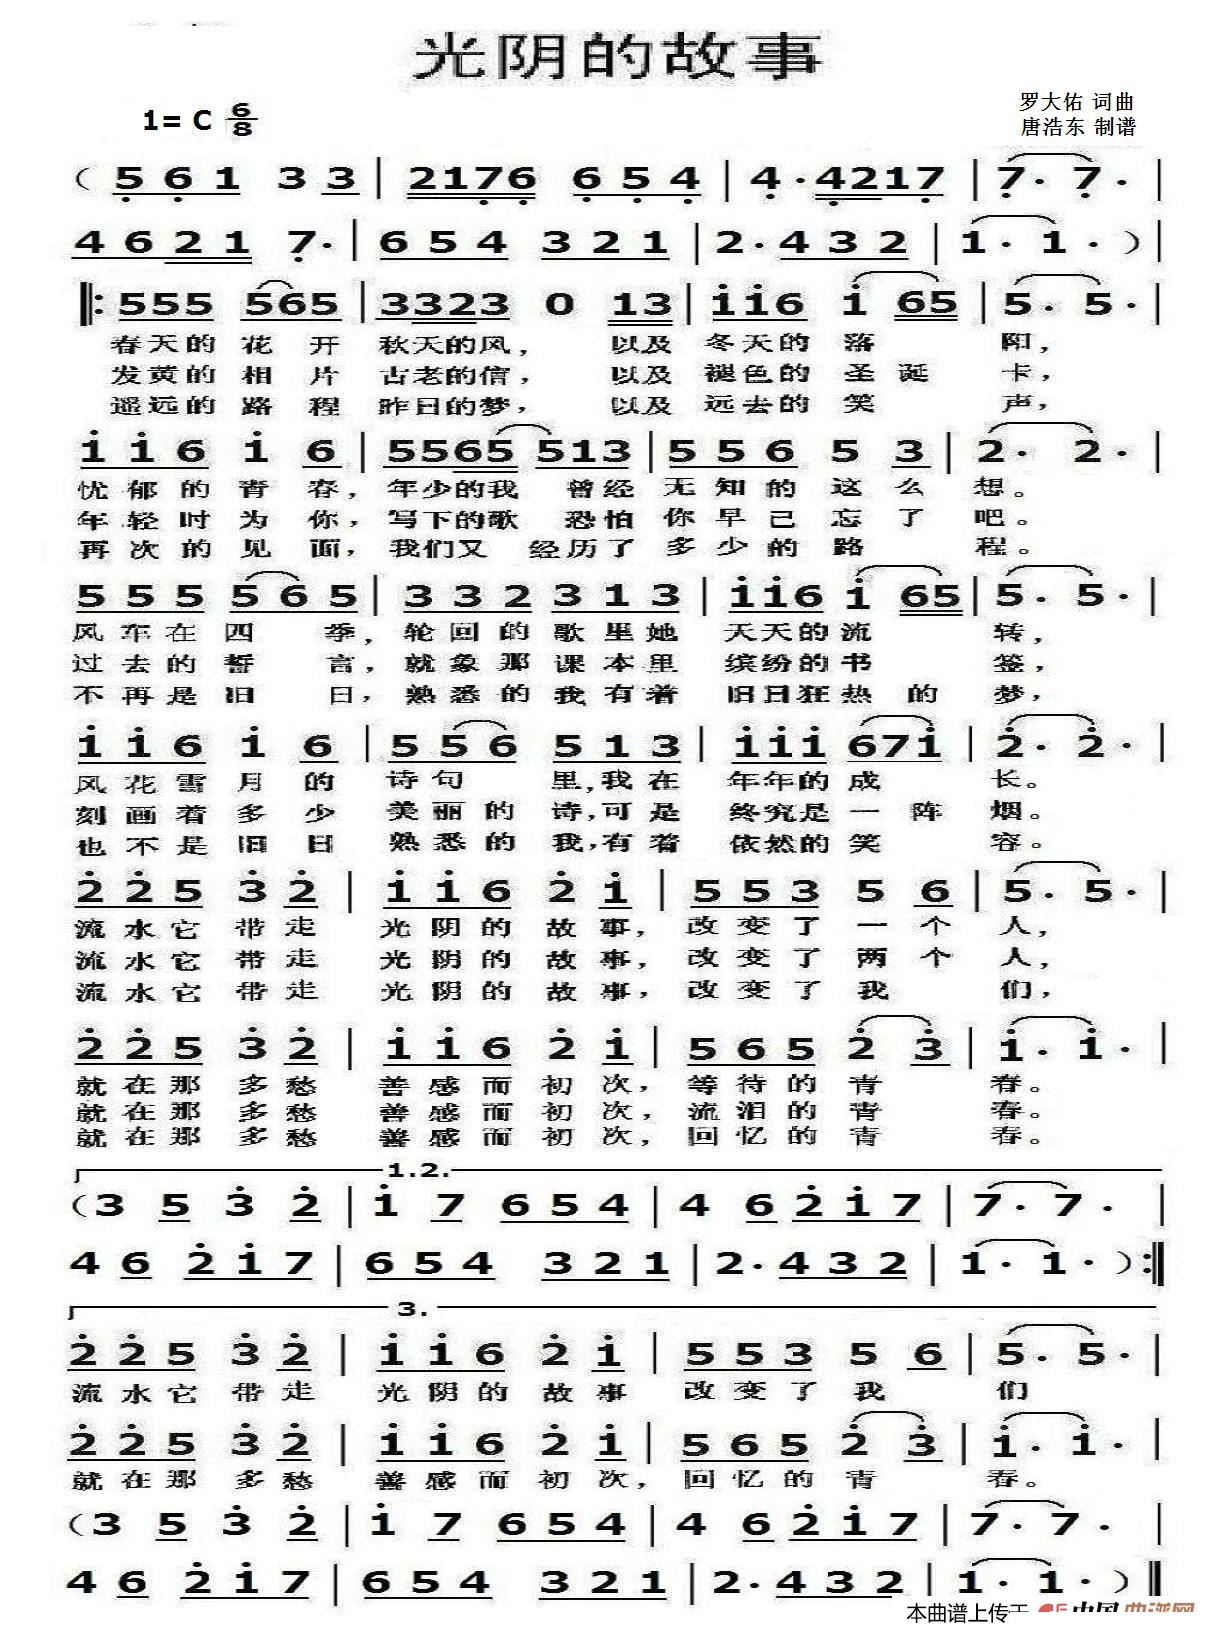 光阴的故事
罗大佑 词曲
1= C 6/8
唐浩东 制谱
( 5 6 1 3 3 | 2 1 7 6 6 5 4 | 4 · 4 2 1 7 | 7 · 7 · |
4 6 2 1 7 · | 6 5 4 3 2 1 | 2 · 4 3 2 | 1 · 1 · ) |
|: 5 5 5 5 6 5 | 3 3 2 3 0 1 3 | 1 1 6 1 6 5 | 5 · 5 · |
春天的花开 秋天的风, 以及冬天的落阳,
发黄的相片 古老的信, 以及褪色的圣诞卡,
遥远的路程 昨日的梦, 以及远去的笑声,
1 1 6 1 6 | 5 5 6 5 5 1 3 | 5 5 6 5 3 | 2 · 2 · |
忧郁的青春, 年少的我 曾经无知的这么想。
年轻时为你, 写下的歌 恐怕你早已忘了吧。
再次的见面, 我们又 经历了多少的路程。
5 5 5 5 6 5 | 3 3 2 3 1 3 | 1 1 6 1 6 5 | 5 · 5 · |
风车在四季, 轮回的歌里她 天天的流转,
过去的誓言, 就象那课本里 缤纷的书签,
不再是旧日, 熟悉的我有着 旧日狂热的梦,
1 1 6 1 6 | 5 5 6 5 1 3 | 1 1 1 6 7 1 | 2 · 2 · |
风花雪月的 诗句里,我在 年年的成长。
刻画着多少 美丽的诗,可是 终究是一阵烟。
也不是旧日 熟悉的我,有着 依然的笑容。
2 2 5 3 2 | 1 1 6 2 1 | 5 5 3 5 6 | 5 · 5 · |
流水它带走 光阴的故事, 改变了一个人,
流水它带走 光阴的故事, 改变了两个人,
流水它带走 光阴的故事, 改变了我们,
2 2 5 3 2 | 1 1 6 2 1 | 5 6 5 2 3 | 1 · 1 · |
就在那多愁 善感而初次, 等待的青春。
就在那多愁 善感而初次, 流泪的青春。
就在那多愁 善感而初次, 回忆的青春。
1.2.
( 3 5 3 2 | 1 7 6 5 4 | 4 6 2 1 7 | 7 · 7 · |
4 6 2 1 7 | 6 5 4 3 2 1 | 2 · 4 3 2 | 1 · 1 · ) :|
3.
2 2 5 3 2 | 1 1 6 2 1 | 5 5 3 5 6 | 5 · 5 · |
流水它带走 光阴的故事 改变了我们
2 2 5 3 2 | 1 1 6 2 1 | 5 6 5 2 3 | 1 · 1 · |
就在那多愁 善感而初次, 回忆的青春。
( 3 5 3 2 | 1 7 6 5 4 | 4 6 2 1 7 | 7 · 7 · |
4 6 2 1 7 | 6 5 4 3 2 1 | 2 · 4 3 2 | 1 · 1 · ) |
本曲谱上传于 中国曲谱网